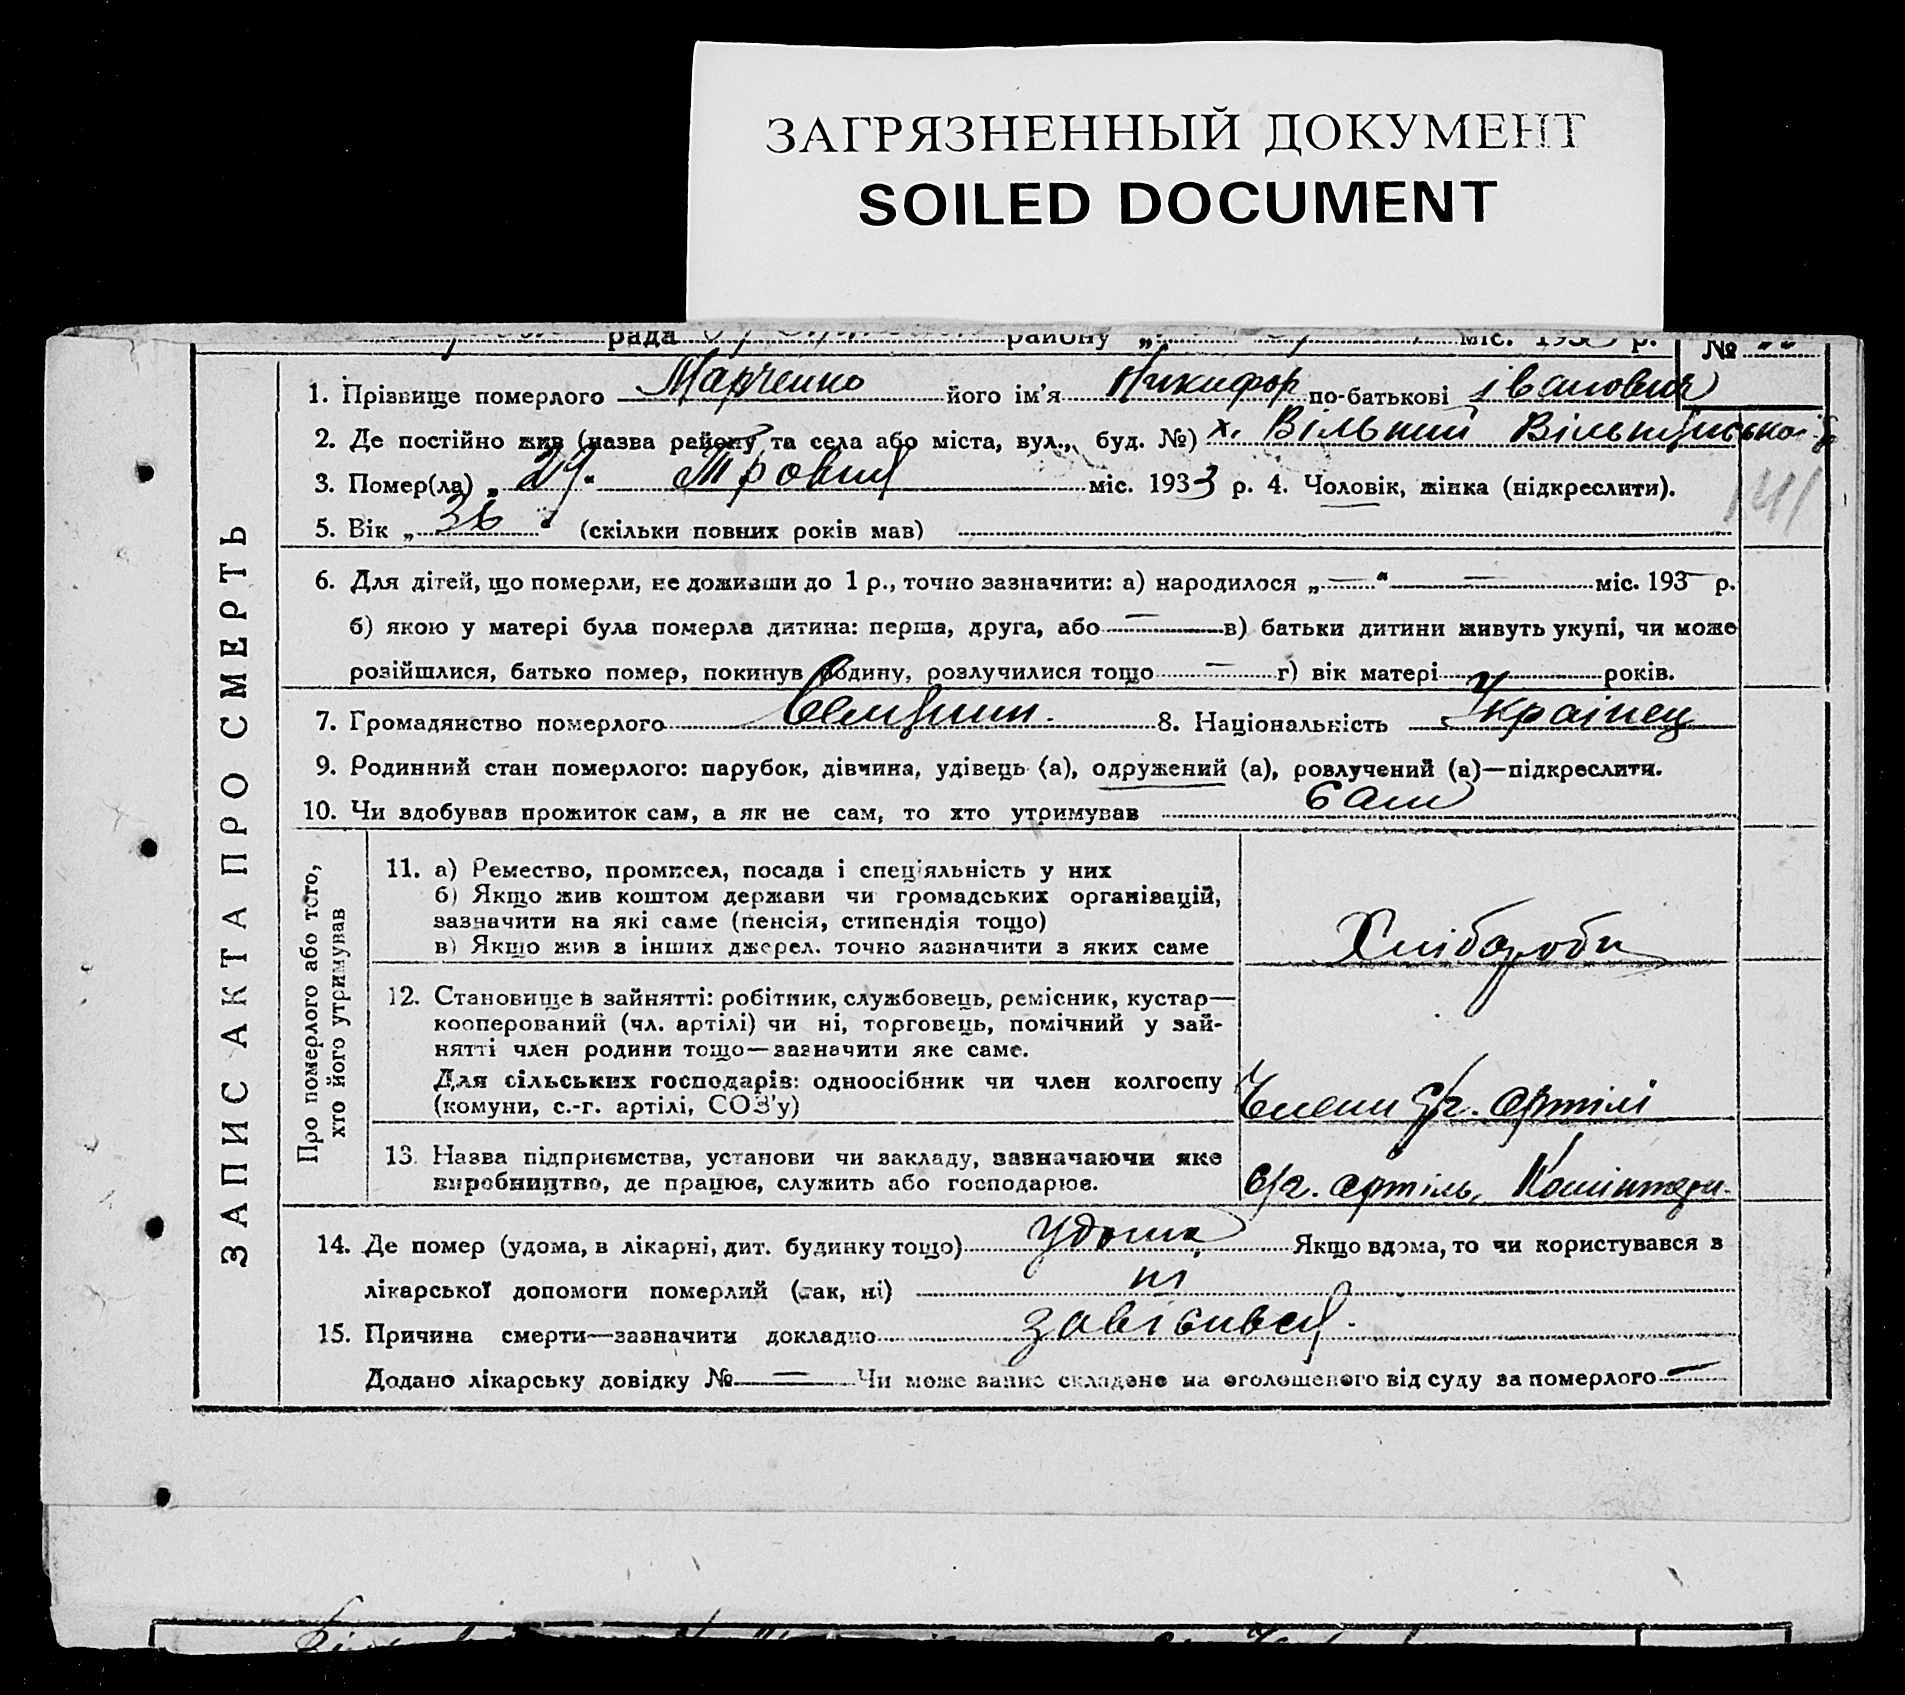 ЗАГРЯЗНЕННЫЙ ДОКУМЕНТ
SOILED DOCUMENT
рада району „ міс. 193 р. №
1. Прізвище померлого Марченко його ім'я Никифор по-батькові івановия
2. Де постійно жив (назва району та села або міста, вул., буд. №) х. Вільний
3. Помер(ла) „29“ міс. 1933 р. 4. Чоловік, жінка (підкреслити).
141
5. Вік „36“ (скільки повних років мав)
6. Для дітей, що померли, не доживши до 1 р., точно зазначити: а) народилося „—“ — міс. 193— р.
б) якою у матері була померла дитина: перша, друга, або — в) батьки дитини живуть укупі, чи може
розійшлися, батько помер, покинув родину, розлучилися тощо — г) вік матері років.
7. Громадянство померлого 8. Національність Українец
9. Родинний стан померлого: парубок, дівчина, удівець (а), одружений (а), розлучений (а)—підкреслити.
10. Чи здобував прожиток сам, а як не сам, то хто утримував сам
ЗАПИС АКТА ПРО СМЕРТЬ
Про померлого або того, хто його утримував
11. а) Ремество, промисел, посада і спеціяльність у них
б) Якщо жив коштом держави чи громадських організацій,
зазначити на які саме (пенсія, стипендія тощо)
в) Якщо жив з інших джерел, точно зазначити з яких саме
Хлібороби
12. Становище в зайнятті: робітник, службовець, ремісник, кустар—
кооперований (чл. артілі) чи ні, торговець, помічний у зай-
нятті член родини тощо—зазначити яке саме.
Для сільських господарів: одноосібник чи член колгоспу
(комуни, с.-г. артілі, СОЗ'у)
Член с/г. артілі
13. Назва підприємства, установи чи закладу, зазначаючи яке
виробництво, де працює, служить або господарює.
С/г. артіль, Комінтерн.
14. Де помер (удома, в лікарні, дит. будинку тощо) удома Якщо вдома, то чи користувався з
лікарської допомоги померлий (так, ні) ні
15. Причина смерти—зазначити докладно завісився.
Додано лікарську довідку № — Чи може запис складено на оголошеного від суду за померлого —